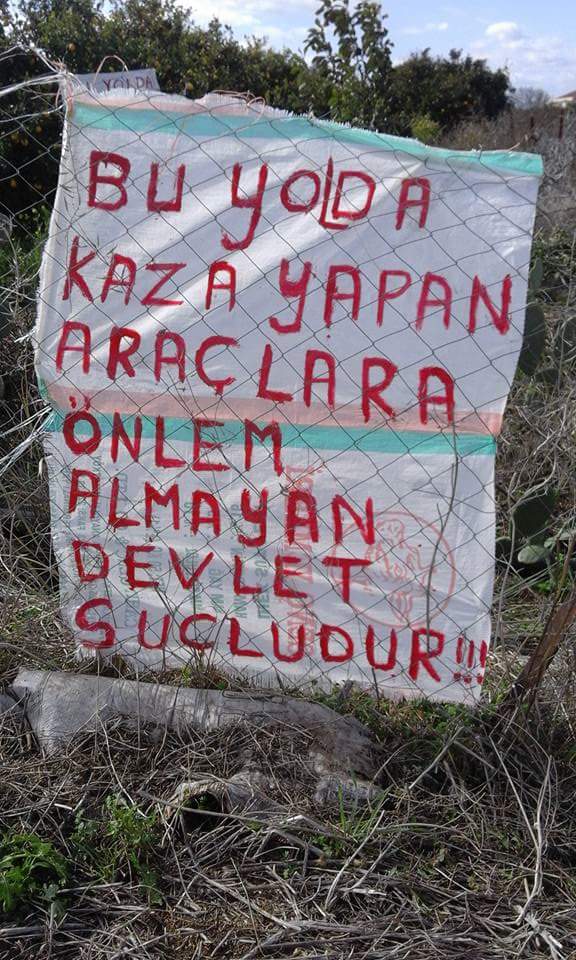 YOLDA
BU YOLDA
KAZA YAPAN
ARAÇLARA
ÖNLEM
ALMAYAN
DEVLET
SUÇLUDUR!!!